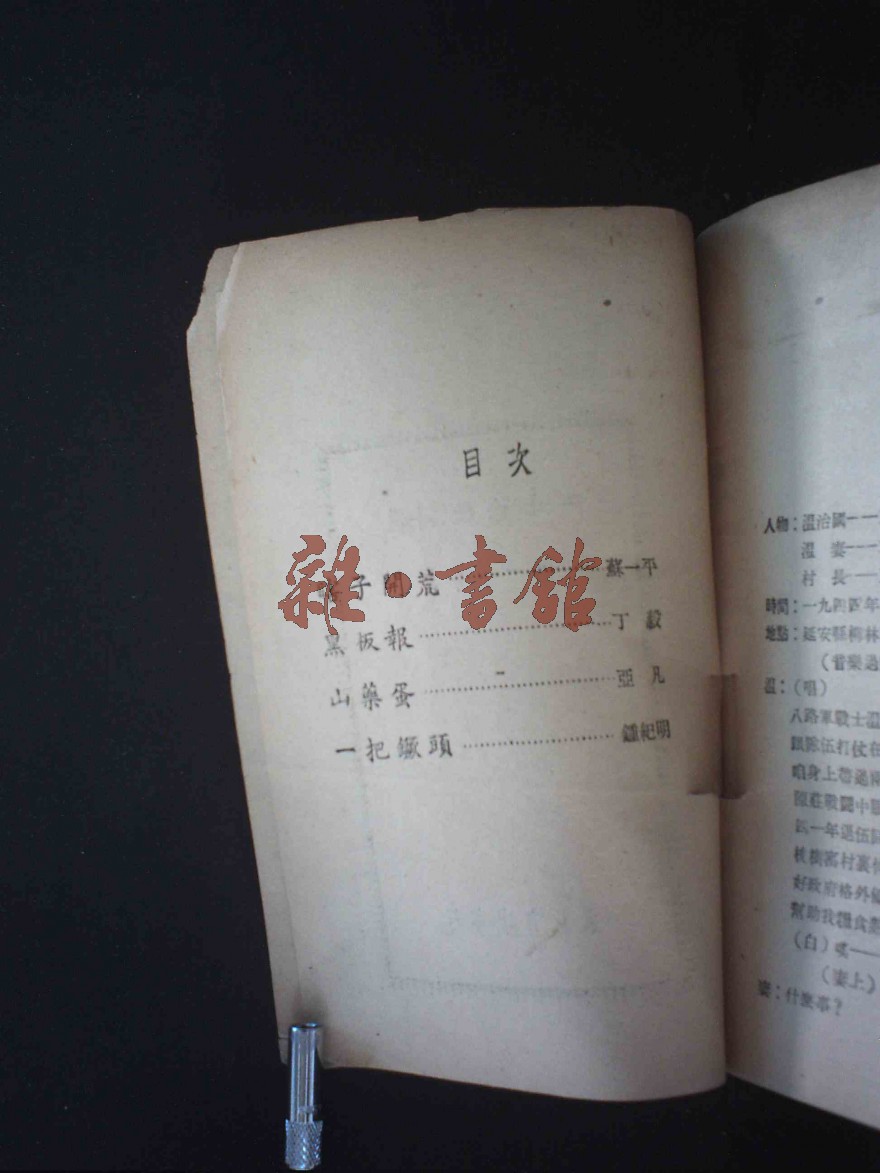 目次
子開荒……蘇一平
黑板報……丁毅
山藥蛋……亞凡
一把鐝頭……鍾紀明
雜·書館
人物：溫治國——
溫妻——
村長——
時間：一九四四年
地點：延安縣柳林
（音樂過
溫：（唱）
八路軍戰士溫
跟隊伍打仗在
咱身上帶過兩
莊戰鬪中
一年退伍歸
村裏
好政府格外
幫助我糧食
（白）
（妻上）
妻：什麽事？